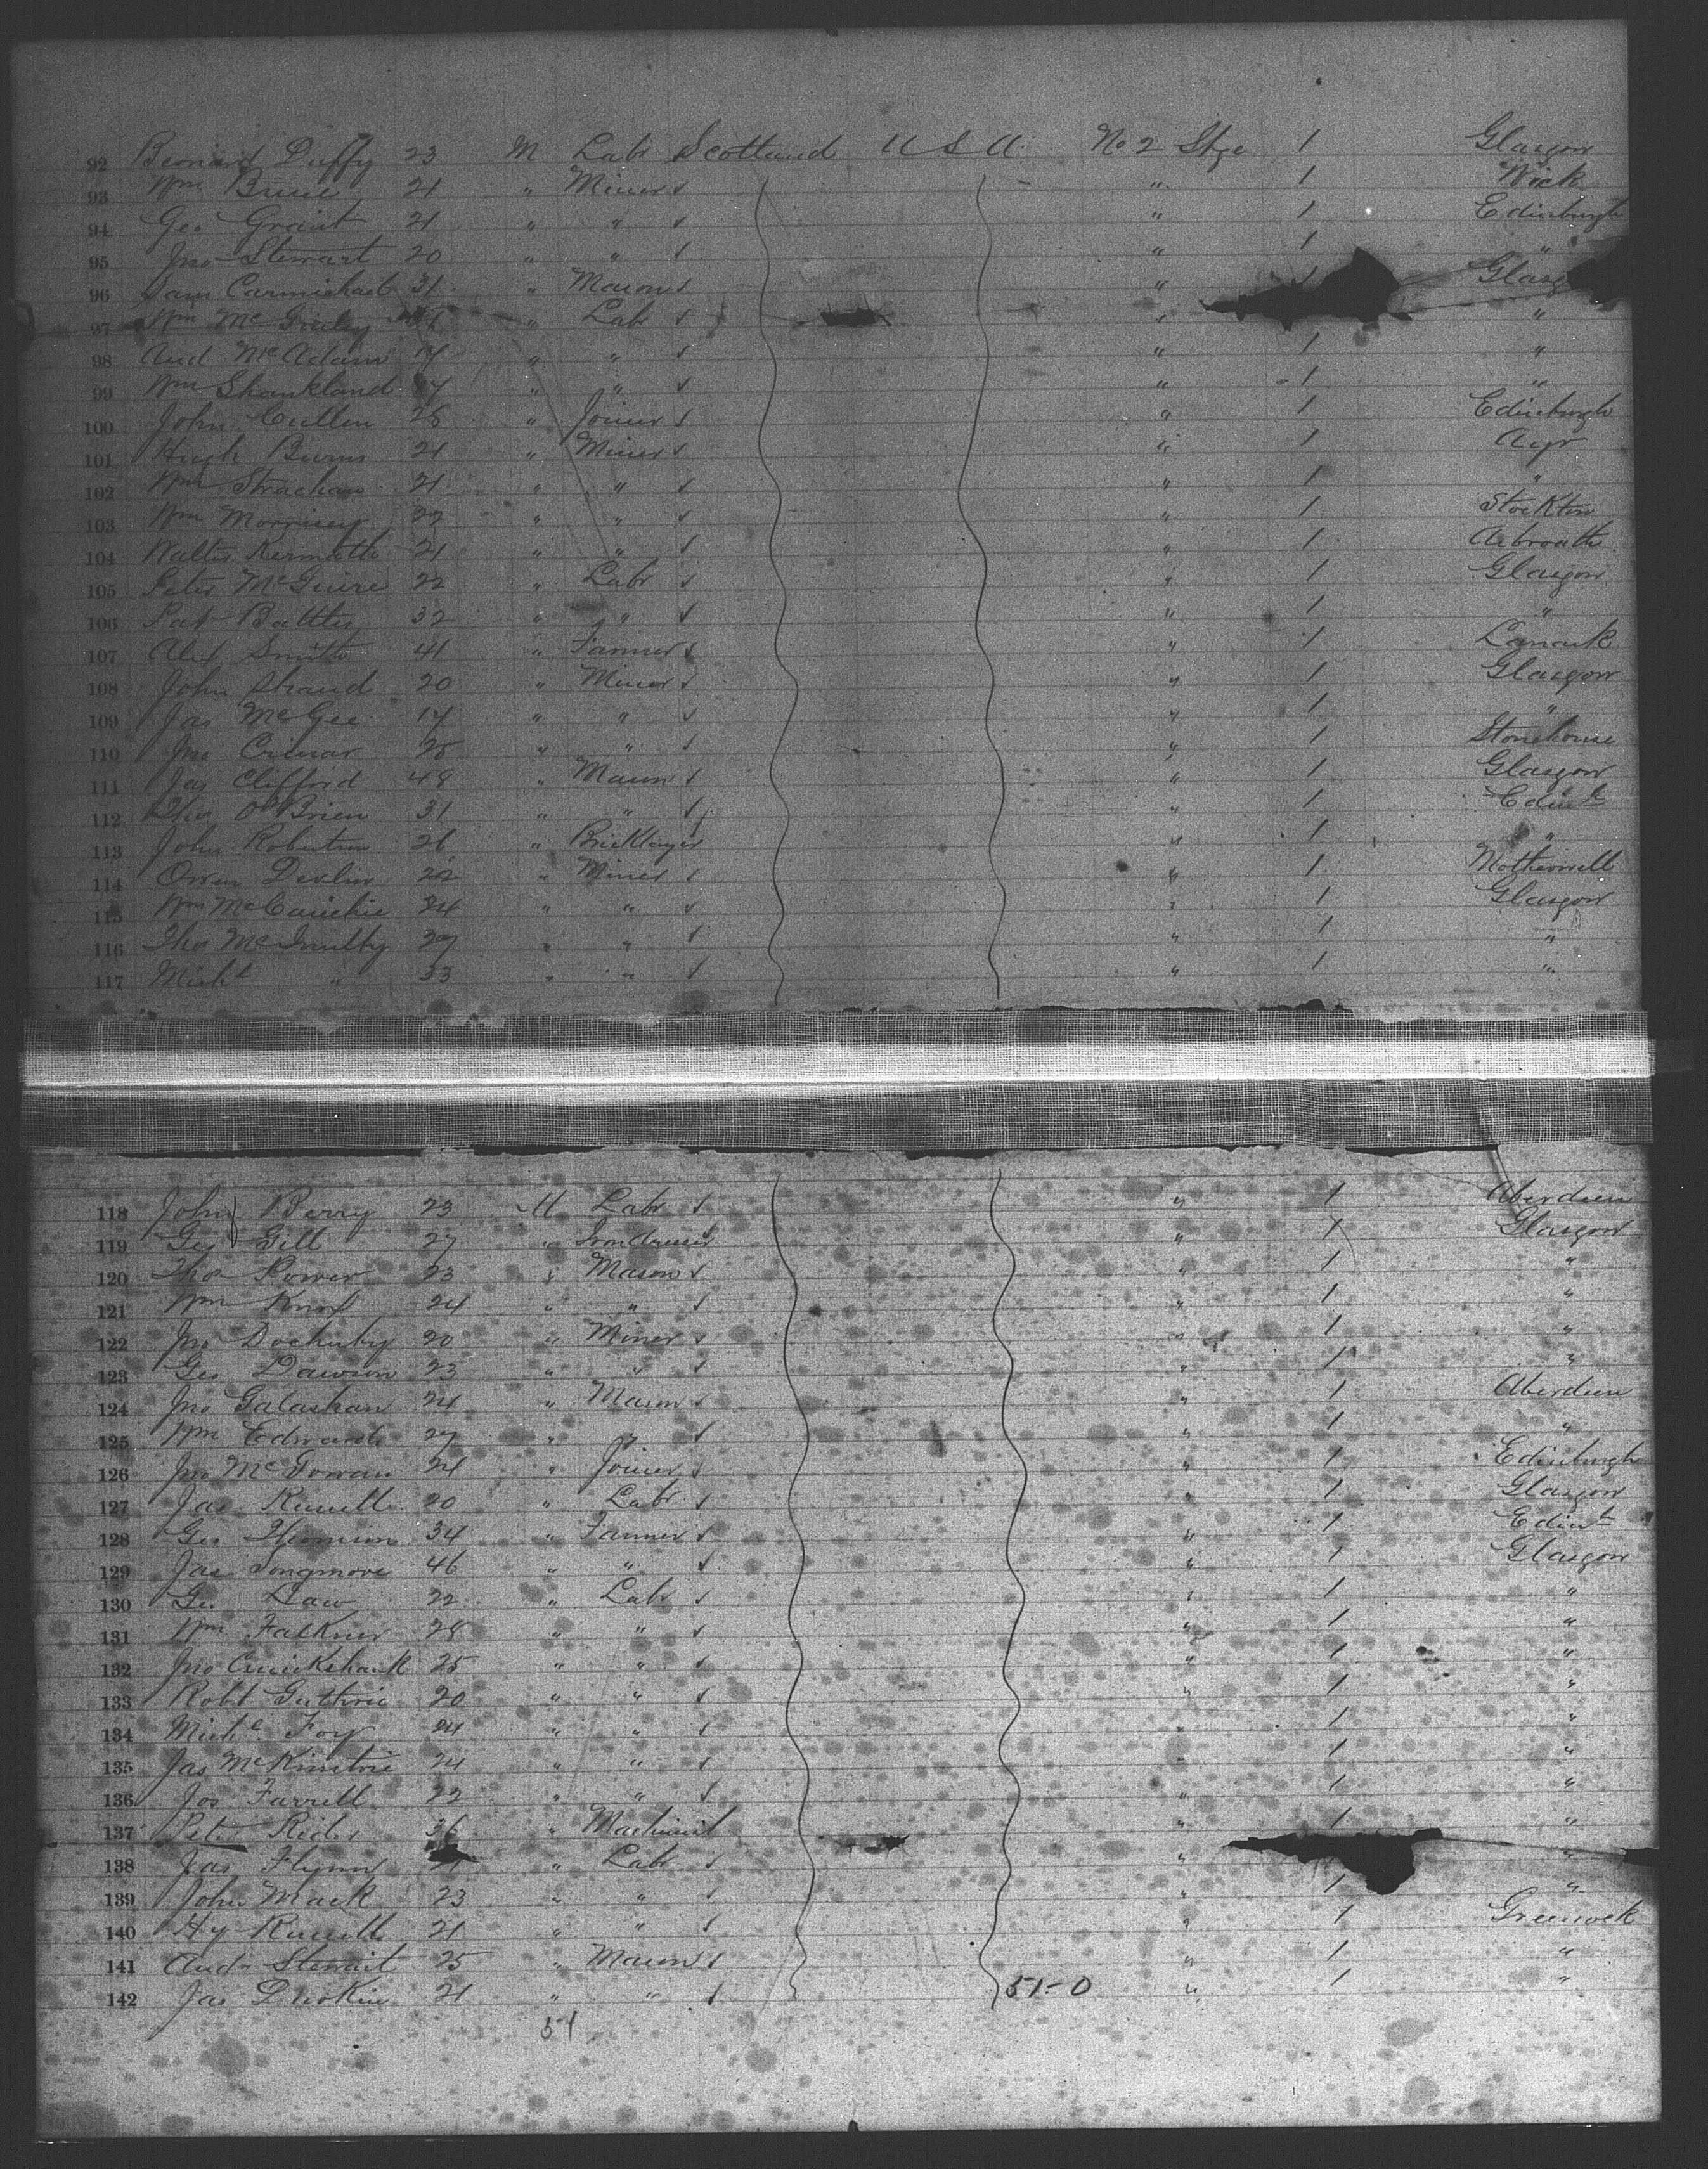 92 Bernard Duffy 23 M Labr Scotland U S A No 2 Stge 1 Glasgow
93 Wm Bruce 21 " Miner s " 1 Wick
94 Geo Grant 21 " " s " 1 Edinburgh
95 Jno Stewart 20 " " s " 1 "
96 Sam Carmichael 31 " Mason s " 1 Glasg
97 Wm " Labr s " "
98 And McAdam " " s " 1 "
99 Wm Shankland " " s " 1 "
100 John Cullen 28 " Joiner s " 1 Edinburgh
101 Hugh Burns 21 " Miner s " 1 Ayr
102 Wm Strachan 21 " " s " 1 "
103 Wm Morrisey 22 " " s " 1 Stockton
104 Walter 21 " " s " 1 Arbroath
105 Peter McGuire 22 " Labr s " 1 Glasgow
106 Pat Battles 32 " " s " 1 "
107 Alex Smith 41 " Farmer s " 1 Lanark
108 John 20 " Miner s " 1 Glasgow
109 Jas McGee " " s " 1 "
110 Jno 25 " " s " 1 Stonehouse
111 Jas Clifford 48 " Mason s " 1 Glasgow
112 Thos O'Brien 31 " " s " 1 Edinh
113 John Robertson 26 " Bricklayer " 1 "
114 Owen Devlin 22 " Miner s " 1 Motherwell
115 Wm " " s " 1 Glasgow
116 Thos McInulty 27 " " s " 1 "
117 Michl " 33 " " s " 1 "
118 John Berry 23 M Labr s " 1 Aberdeen
119 Geo Gill 27 " Iron dresser " 1 Glasgow
120 Thos Power 23 " Mason s " 1 "
121 Wm Knox 24 " " s " 1 "
122 Jno 20 " Miner s " 1 "
123 Geo Dawson 23 " " s " 1 "
124 Jno Galashan 24 " Mason s " 1 Aberdeen
125 Wm Edwards 27 " " s " 1 "
126 Jno McGowan 24 " Joiner s " 1 Edinburgh
127 Jas Russell 20 " Labr s " 1 Glasgow
128 Geo Thomson 34 " Farmer s " 1 Edinh
129 Jas Longmore 46 " " s " 1 Glasgow
130 Geo Law 22 " Labr s " 1 "
131 Wm Falkner 28 " " s " 1 "
132 Jno Cruickshank 25 " " s " 1 "
133 Robt Guthrie 20 " " s " 1 "
134 Michl Foy 24 " " s " 1 "
135 Jas 24 " " s " 1 "
136 Jos Farrell 22 " " s " 1 "
137 Peter Rider 36 " Machinist " 1 "
138 Jas Flynn " Labr s " "
139 John Mack 23 " " s " 1 "
140 Hy Russell 21 " " s " 1 Greenock
141 Andw Stewart 25 " Mason s " 1 "
142 Jas Durkin 21 " " s 51-0 " 1 "
51